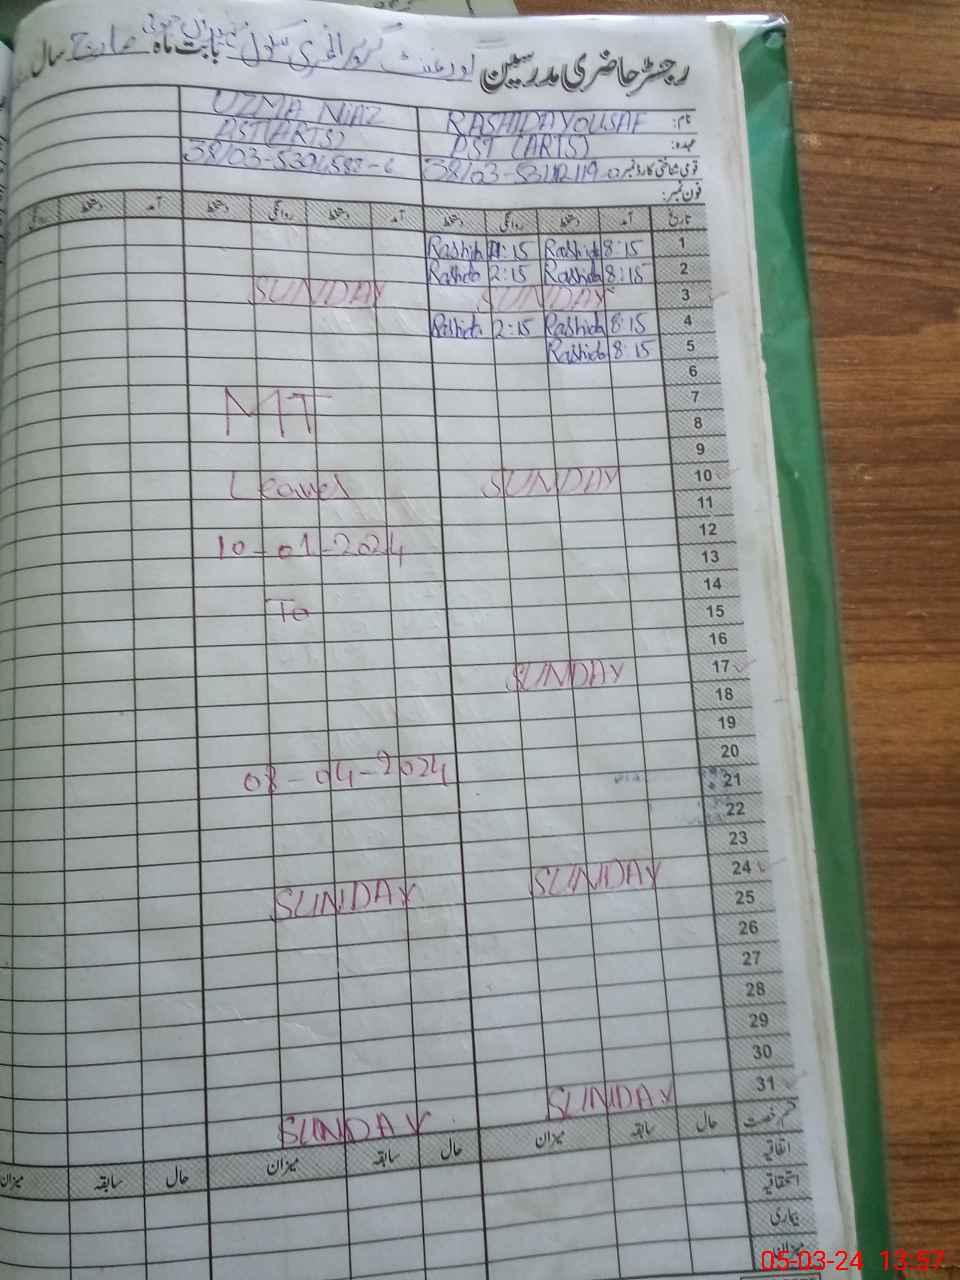 رجسٹر حاضری مدرسین گورنمنٹ گرلز پرائمری سکول بابت ماہ مارچ سال
نام: RASHIDA YOUSAF UZMA NIAZ
عہدہ: PST (ARTS) PST(ARTS)
قومی شناختی کارڈ نمبر
فون نمبر:
تاریخ آمد دستخط روانگی دستخط آمد دستخط روانگی دستخط آمد دستخط روانگی
1 8:15 Rashida :15 Rashida
2 8:15 Rashida 2:15 Rashida
3 SUNDAY SUNDAY
4 8:15 Rashida 2:15 Rashida
5 8:15 Rashida
6
7 MT
8
9
10 SUNDAY Leaves
11
12 10-01-2024
13
14
15 To
16
17 SUNDAY
18
19
20
21 08-04-2024
22
23
24 SUNDAY SUNDAY
25
26
27
28
29
30
31 SUNDAY SUNDAY
قسم رخصت حال سابقہ میزان حال سابقہ میزان حال سابقہ میزان
اتفاقیہ
استحقاقیہ
بیماری
میزان
05-03-24 13:57